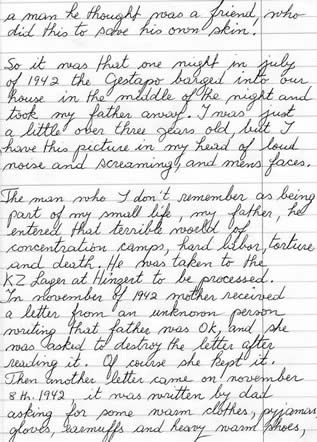 a man he thought was a friend, who
did this to save his own skin.
So it was that one night in july
of 1942 the Gestapo barged into our
house in the middle of the night and
took my father away. I was just
a little over three years old, but I
have this picture in my head of loud
noise and screaming, and mens faces.
The man who I don't remember as being
part of my small life, my father, he
entered that terrible world of
concentration camps, hard labor, torture
and death. He was taken to the
KZ Lager at Hinzert to be processed.
In november of 1942 mother received
a letter from an unknown person
writing that father was Ok, and she
was asked to destroy the letter after
reading it. Of course she kept it.
Then another letter came on november
8th. 1942, it was written by dad
asking for some warm clothes, pyjamas
gloves, earmuffs and heavy warm shoes,